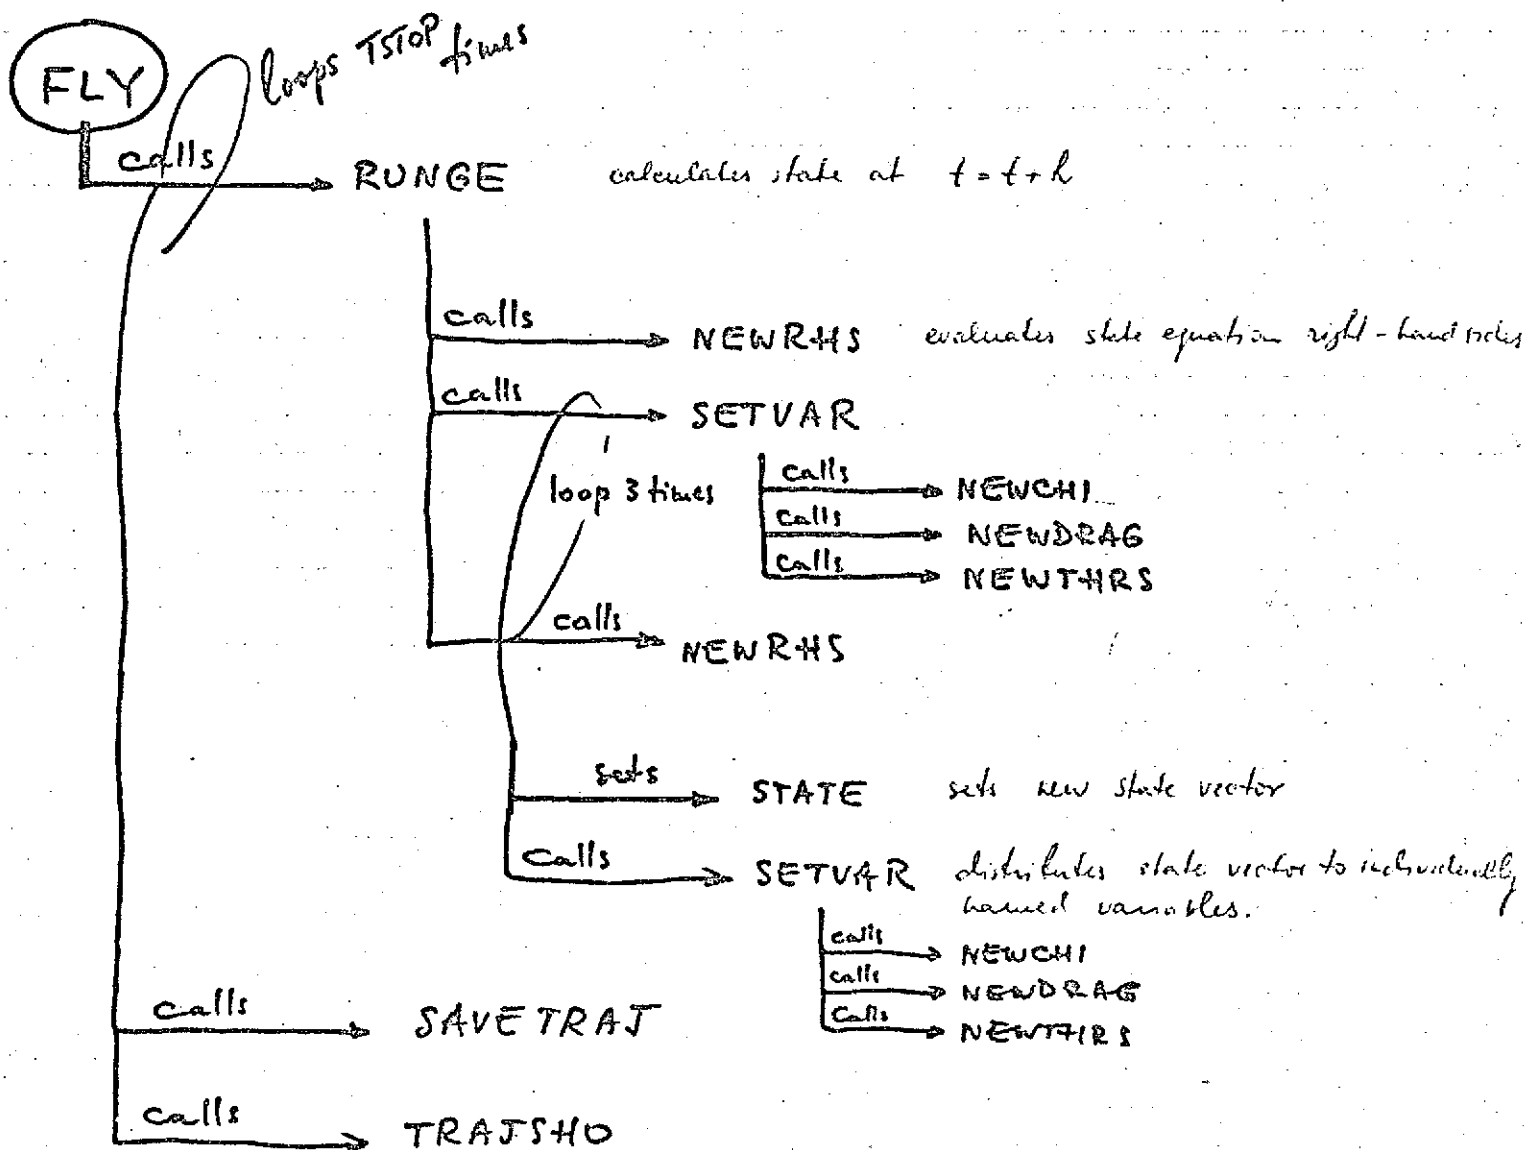 FLY
loops TSTOP times
calls RUNGE calculates state at t = t + h
calls NEWRHS evaluates state equation right-hand sides
calls SETVAR
loop 3 times
calls NEWCHI
calls NEWDRAG
calls NEWTHRS
calls NEWRHS
sets STATE sets new state vector
calls SETVAR distributes state vector to individually
named variables.
calls NEWCHI
calls NEWDRAG
calls NEWTHRS
calls SAVETRAJ
calls TRAJSHO